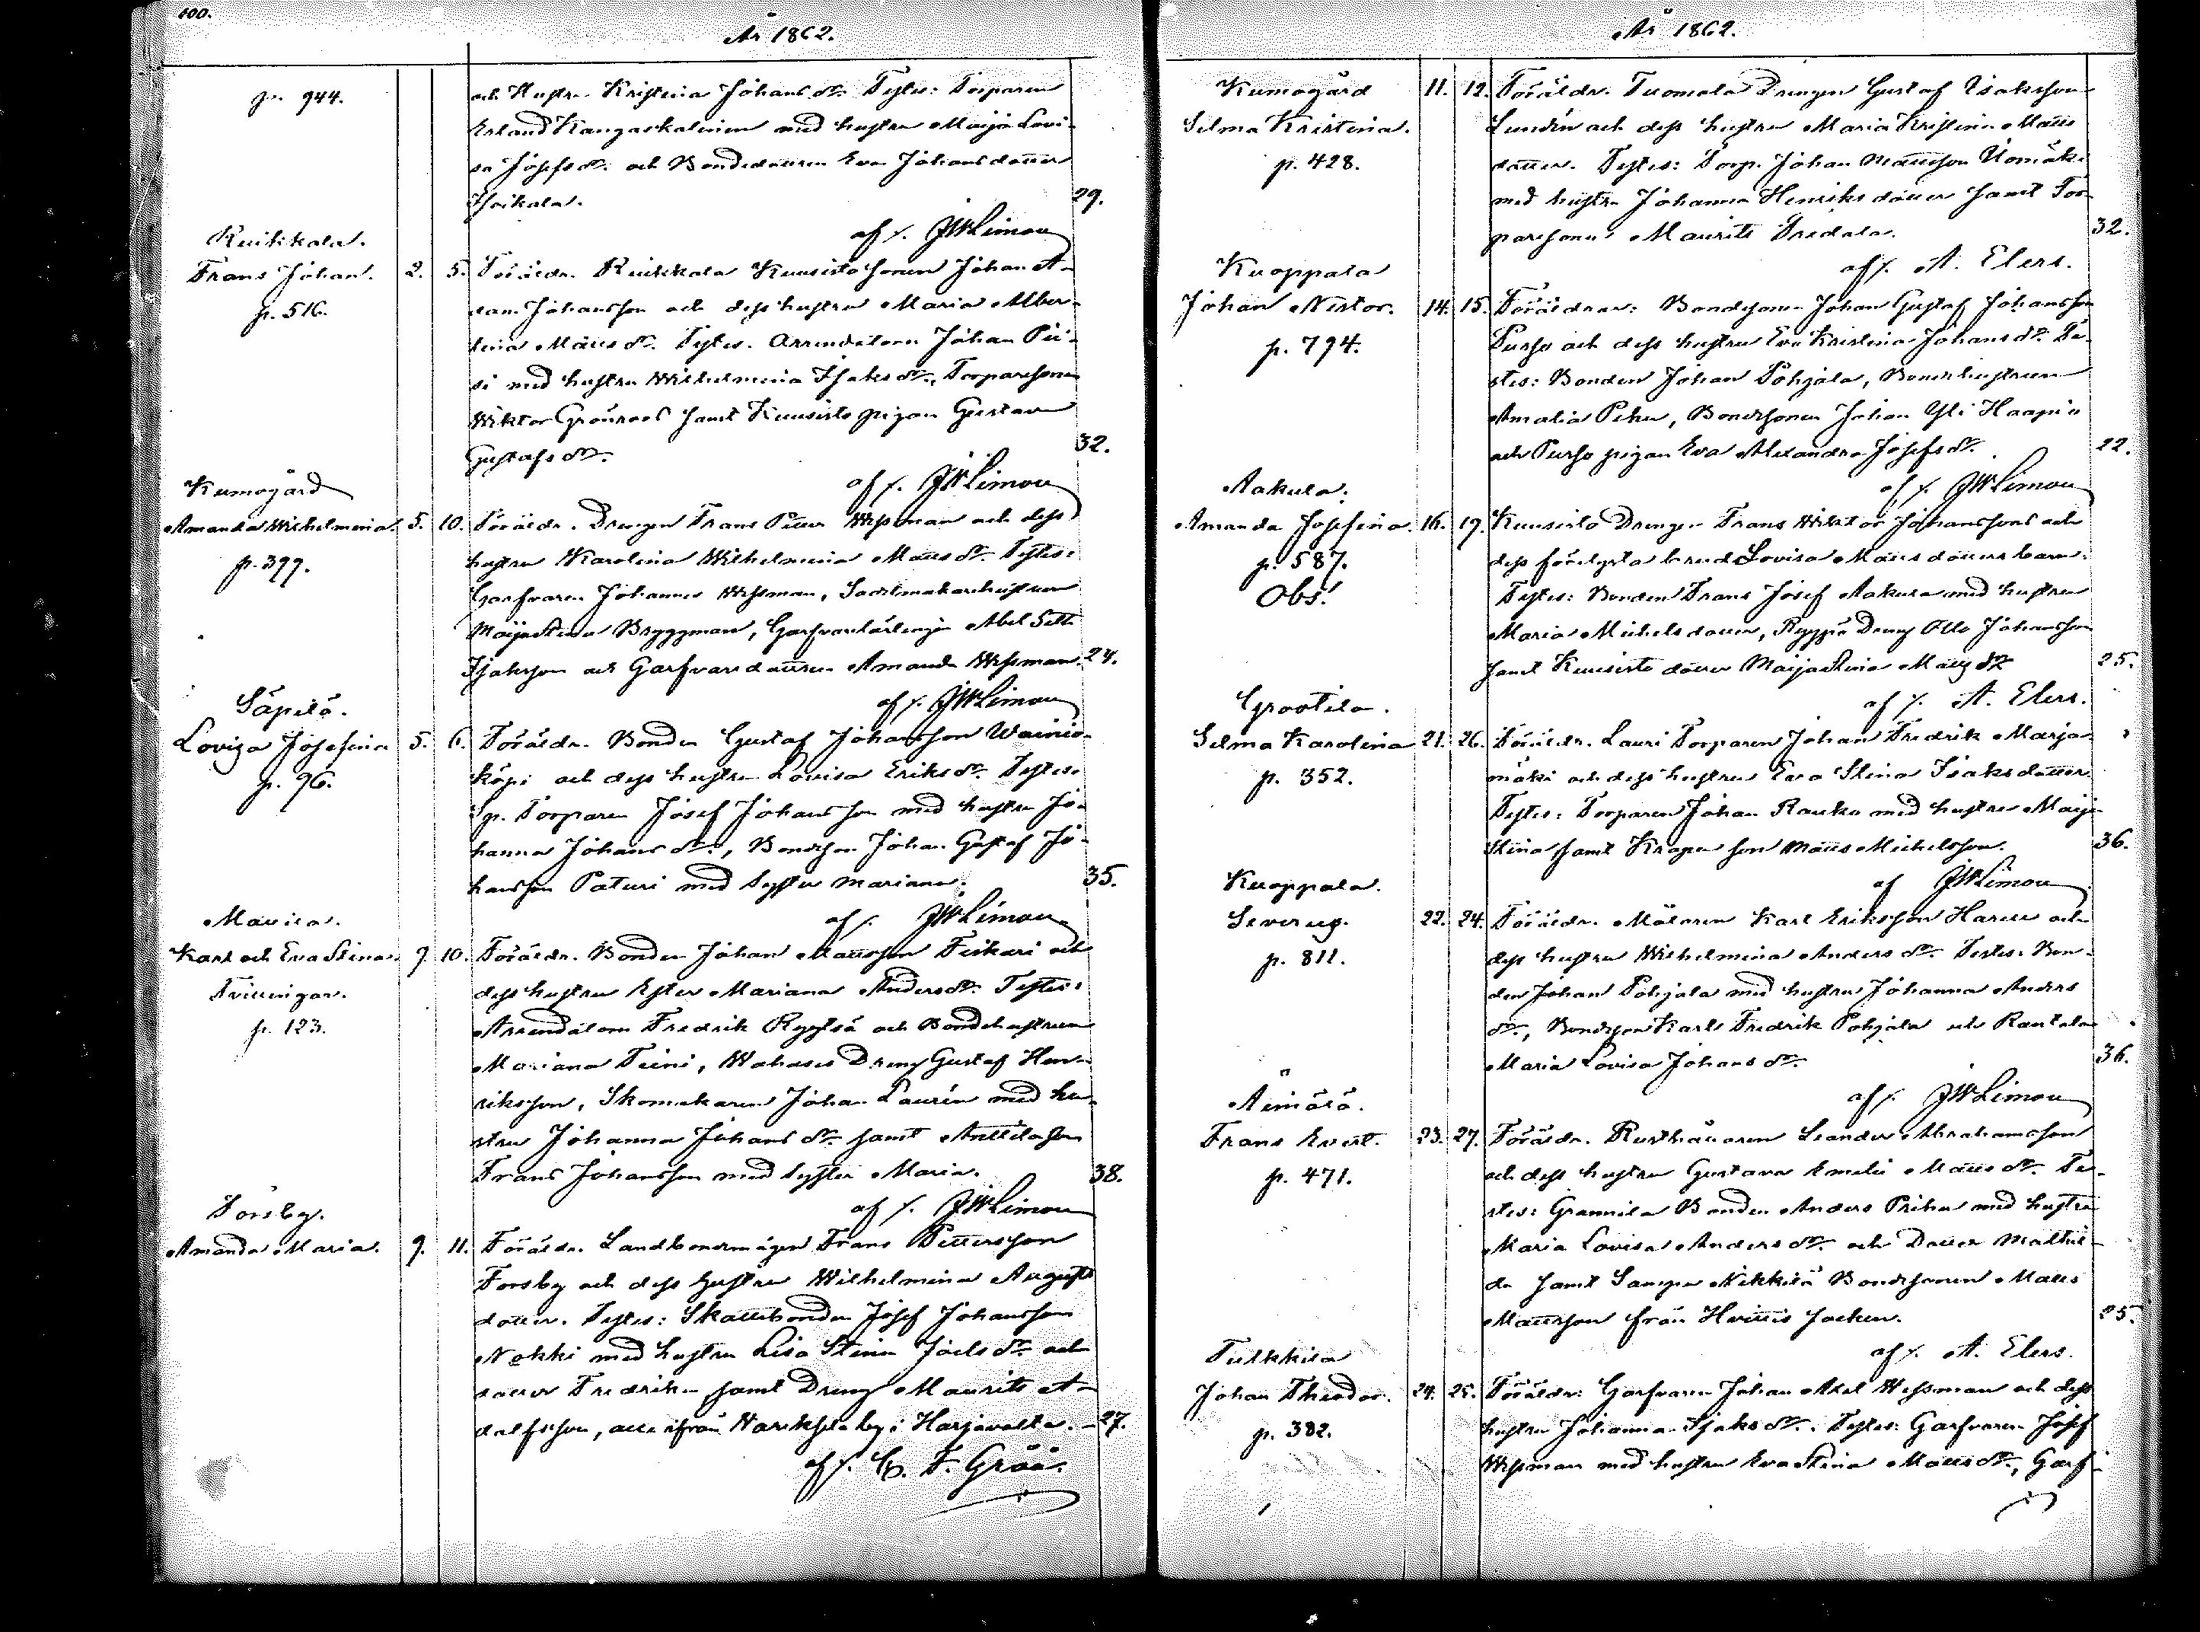 100.
År 1862.
p. 944.
och Hustru Kristina Johans dr. Testes: Torparen
Erland Kangaskalinen med hustru Maija Lovi-
sa Josefs dr. och Bondedottren Eva Johans dotter
29.
af f. JWLimon
Kuikkala.
Frans Johan. 2. 5. Föräldr. Kuikkala Kuusisto sonen Johan A-
p. 516.
dam Johansson och dess hustru Maria Alber-
tina Matts dr. Testes. Arrendatorn Johan Pii-
si med hustru Wilhelmina Isaks dr., Torparesonen
Wiktor Grönroos samt Kuusisto pigan Gustava
Gustafs dr. 32.
af f. JWLimon
Kumogård
Amanda Wilhelmina. 5. 10. Föräldr. Drengen Frans Petter Wessman och dess
p. 399.
hustru Karolina Wilhelmina Matts dr. Testes:
Garfvaren Johannes Wessman, Sadelmakarehustrun
Maija Stina Bryggman, Garfvarelärlingen Abel Seth
Isaksson och Garfvaredottren Amanda Wessman. 24.
af f. JWLimon
Säpilä.
Loviza Josefina 5. 6. Föräldr. Bonden Gustaf Johansson Wainio-
p. 96.
köpi och dess hustru Lovisa Eriks dr. Testes:
Sp. Torparen Josef Johansson med hustru Jo-
hanna Johans dr., Bondeson Johan Gustaf Jo-
hansson Paturi med syster Mariana. 35.
af f. JWLimon
Mauria.
Karl och Eva Stina. 9. 10. Föräldr. Bonden Johan Mattsson Feikari och
Tvillingar.
p. 123.
dess hustru Ester Mariana Anders dr. Testes:
Arrendatorn Fredrik Ryytsä och Bondehustrun
Mariana Teini, Wahases Dreng Gustaf Hen-
riksson, Skomakaren Johan Laurén med hu-
stru Johanna Johans dr. samt Anttila son
Frans Johansson med syster Maria. 38.
af f. JWLimon
Forsby.
Amanda Maria. 9. 11. Föräldr. Landbondemågen Frans Pettersson
Forsby och dess hustru Wilhelmina Augusts
dotter. Testes: Skattebonden Josef Johansson
Nokki med hustru Lisa Stina Joels dr. och
dotter Fredrika samt Dreng Maurits A-
dolfsson, alla ifrån by i Harjavalta. 27.
af f. F. Gröö.
År 1862.
Kumogård 11. 12. Föräldr. Tuomola Drengen Gustaf Isaksson
Selma Kristina.
p. 428.
Lundén och dess hustru Maria Kristina Matts
dotter. Testes: Torp. Johan Mattsson Uomäki
med hustru Johanna Henriks dotter samt Tor-
paresonen Maurits Tredala. 32.
af f. A. Elers.
Kuoppala
Johan Nestor. 14. 15. Föräldrar: Bondesonen Johan Gustaf Johansson
p. 794.
Purso och dess hustru Eva Kristina Johans dr. Te-
stes: Bonden Johan Pohjala, Bondehustrun
Amalia Peku, Bondesonen Johan Yli Haapio
och Purso pigan Eva Alexandra Josefs dr. 22.
af f. JWLimon
Aakula.
Amanda Josefina. 16. 17. Kuusisto Drengen Frans Wiktor Johanssons och
p. 587.
Obs!
dess förelysta brud Lovisa Matts dotters barn.
Testes: Bonden Frans Josef Aakula med hustru
Maria Michels dotter, Ryypä Dreng Otto Johansson
samt Kuusisto dotter Maija Stina Matts dr. 25.
af f. A. Elers.
Grootila.
Selma Karolina 21. 26. Föräldr. Lauri Torparen Johan Fredrik Marja-
p. 352.
mäki och dess hustru Eva Stina Isaks dotter.
Testes: Torparen Johan Rauko med hustru Maija
Stina samt Krapu son Matts Michelsson. 36.
af JWLimon
Kuoppala.
Severus. 22. 24. Föräldr. Målaren Karl Eriksson Harell och
p. 811.
dess hustru Wilhelmina Anders dr. Testes: Bon-
den Johan Pohjala med hustru Johanna Anders
dr., Bondeson Karl Fredrik Pohjala och Rantala
Maria Lovisa Johans dr. 36.
af f. JWLimon
Äimälä.
Frans Evert. 23. 27. Föräldr. Rusthållaren Leander Abrahamsson
p. 471.
och dess hustru Gustava Emilia Matts dr. Te-
stes: Grannila Bonden Anders Priha med hustru
Maria Lovisa Anders dr. och Dotter Mathil-
da samt Sampu Nikkilä Bondesonen Matts
Mattsson från Hvittis socken. 25.
af f. A. Elers.
Tulkkila
Johan Theodor. 24. 25. Föräldr: Garfvaren Johan Axel Wessman och dess
p. 382.
hustru Johanna Isaks dr. Testes: Garfvaren Josef
Wessman med hustru Eva Stina Matts dr., Garf-